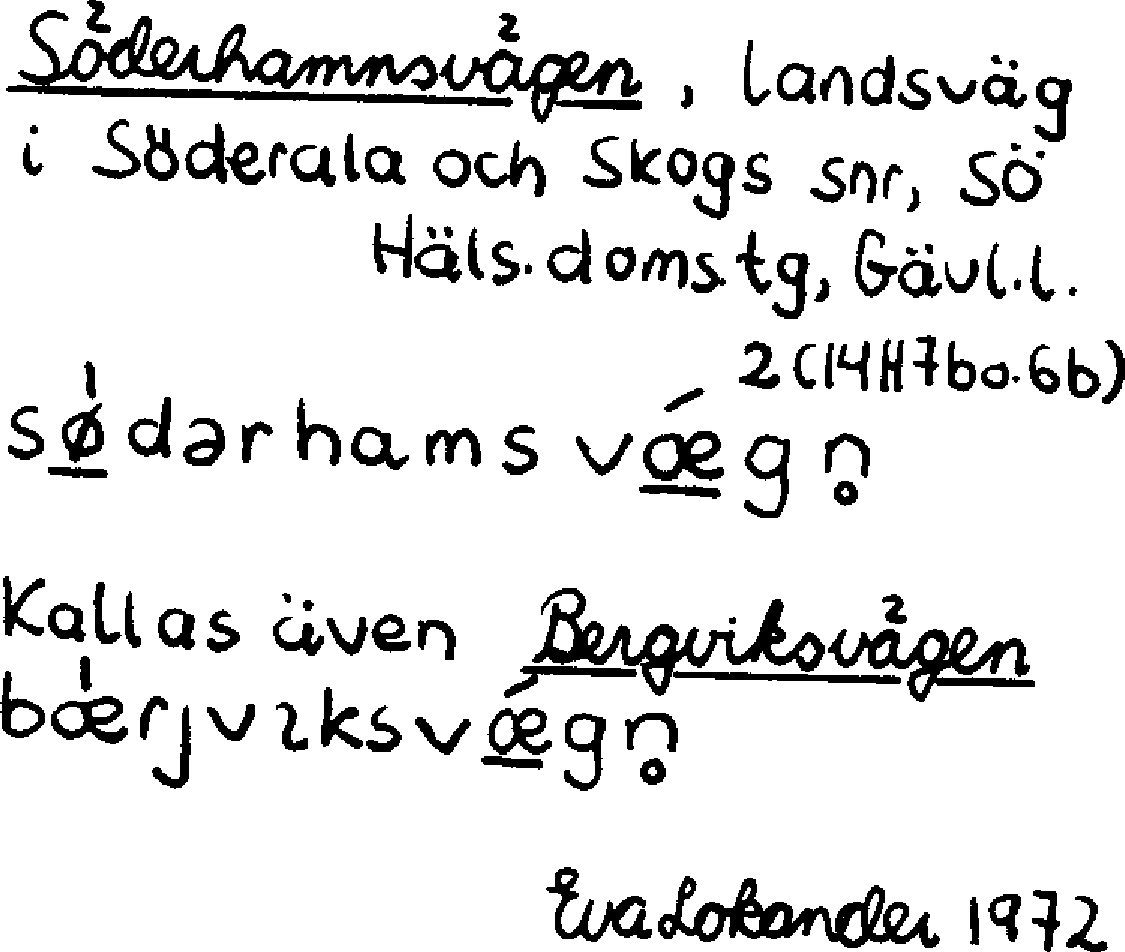 Söderhamnsvägen, landsväg
i Söderala och Skogs snr, Sö
Häls. doms.tg, Gävl.l.
2 (14H7b o. 6b)
sø̀dərhams vǽgn̥
Kallas även Bergviksvägen
bæ̀rjvıksvǽgn̥
Eva Lokander 1972